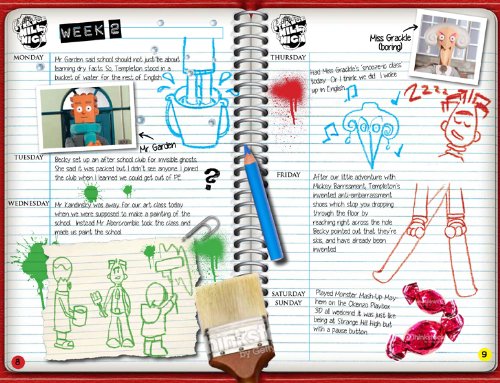 HILL
WEEK 2
MONDAY
Mr Garden said school should not just be about
learning dry facts. So, Templeton stood in a
bucket of water for the rest of English.
Mr Garden
TUESDAY
Becky set up an after school club for invisible ghosts.
She said it was packed but I didn't see anyone. I joined
the club when I learned we could get out of PE.
?
WEDNESDAY
Mr Kandinsky was away for our art class today
when we were supposed to make a painting of the
school. Instead Mr Abercrombie took the class and
made us paint the school.
8
THURSDAY
Miss Grackle
(boring)
Had Miss Grackle's "snooze-ic class"
today. Or I think we did. I woke
up in English.
ZZZZ
FRIDAY
After our little adventure with
Mickey Barrasment, Templeton's
invented anti-embarrassment
shoes which stop you dropping
through the floor by
reaching right across the hole.
Becky pointed out that they're
skis, and have already been
invented.
SATURDAY
SUNDAY
Played Monster Mash-Up May-
hem on the Okenzo Playbox
3D all weekend. It was just like
being at Strange Hill High but
with a pause button.
9